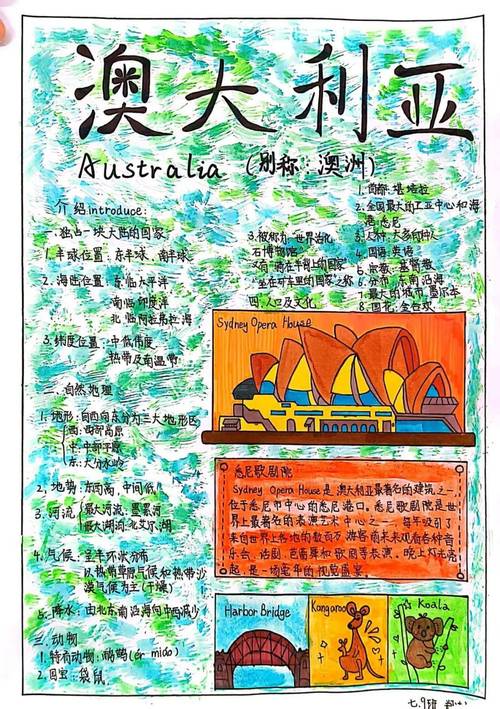 澳大利亚
Australia (别称:澳洲)
介绍introduce:
一.独占一块大陆的国家
1.半球位置:东半球、南半球
2.海陆位置:东临太平洋
南临印度洋
北临阿拉弗拉海
3.纬度位置:中低纬度
热带及南温带
二.自然地理:
1.地形:自西向东分为三大地形区
西:西部高原
中:中部平原
东:大分水岭
2.地势:东西高,中间低
3.河流
最大河流:墨累河
最大湖泊:北艾尔湖
4.气候:呈半环状分布
以热带草原气候和热带沙
漠气候为主(干燥)
5.降水:由北东南沿海向中西减少
三.动物
1.特有动物:鸸鹋(ér miáo)
2.国宝:袋鼠
3.被称为:世界活化
石博物馆
又有"骑在羊背上的国家"
"坐在矿车里的国家"之称
四.人口及文化
1.首都:堪培拉
2.全国最大的工业中心和海
港:悉尼
3.人种:大多白种人
4.国语:英语
5.宗教:基督教
6.分布:东南沿海
7.最大的城市:墨尔本
8.国花:金合欢
Sydney Opera House
悉尼歌剧院
Sydney Opera House是澳大利亚最著名的建筑之一
位于悉尼市中心的悉尼港口。悉尼歌剧院是世
界上最著名的表演艺术中心之一,每年吸引了
来自世界上各地的数百万游客前来观看各种音
乐会、话剧、芭蕾舞和歌剧等表演。晚上灯光亮
起,是一场笔年的视觉盛宴。
Harbor Bridge
Kangaroo
Koala
七.9班